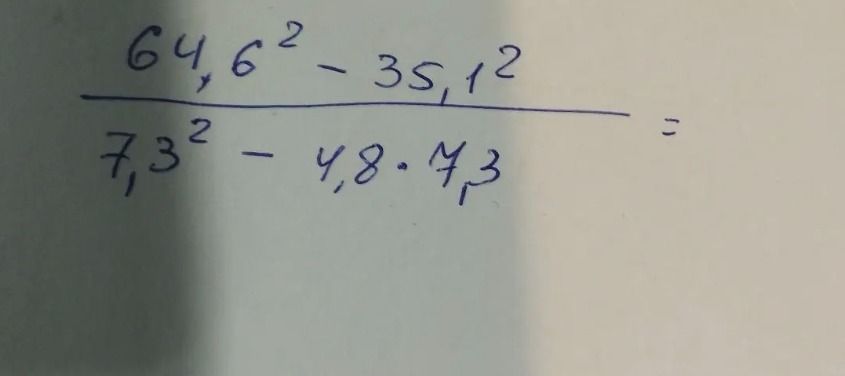 64,6² - 35,1²
7,3² - 4,8 · 7,3 =